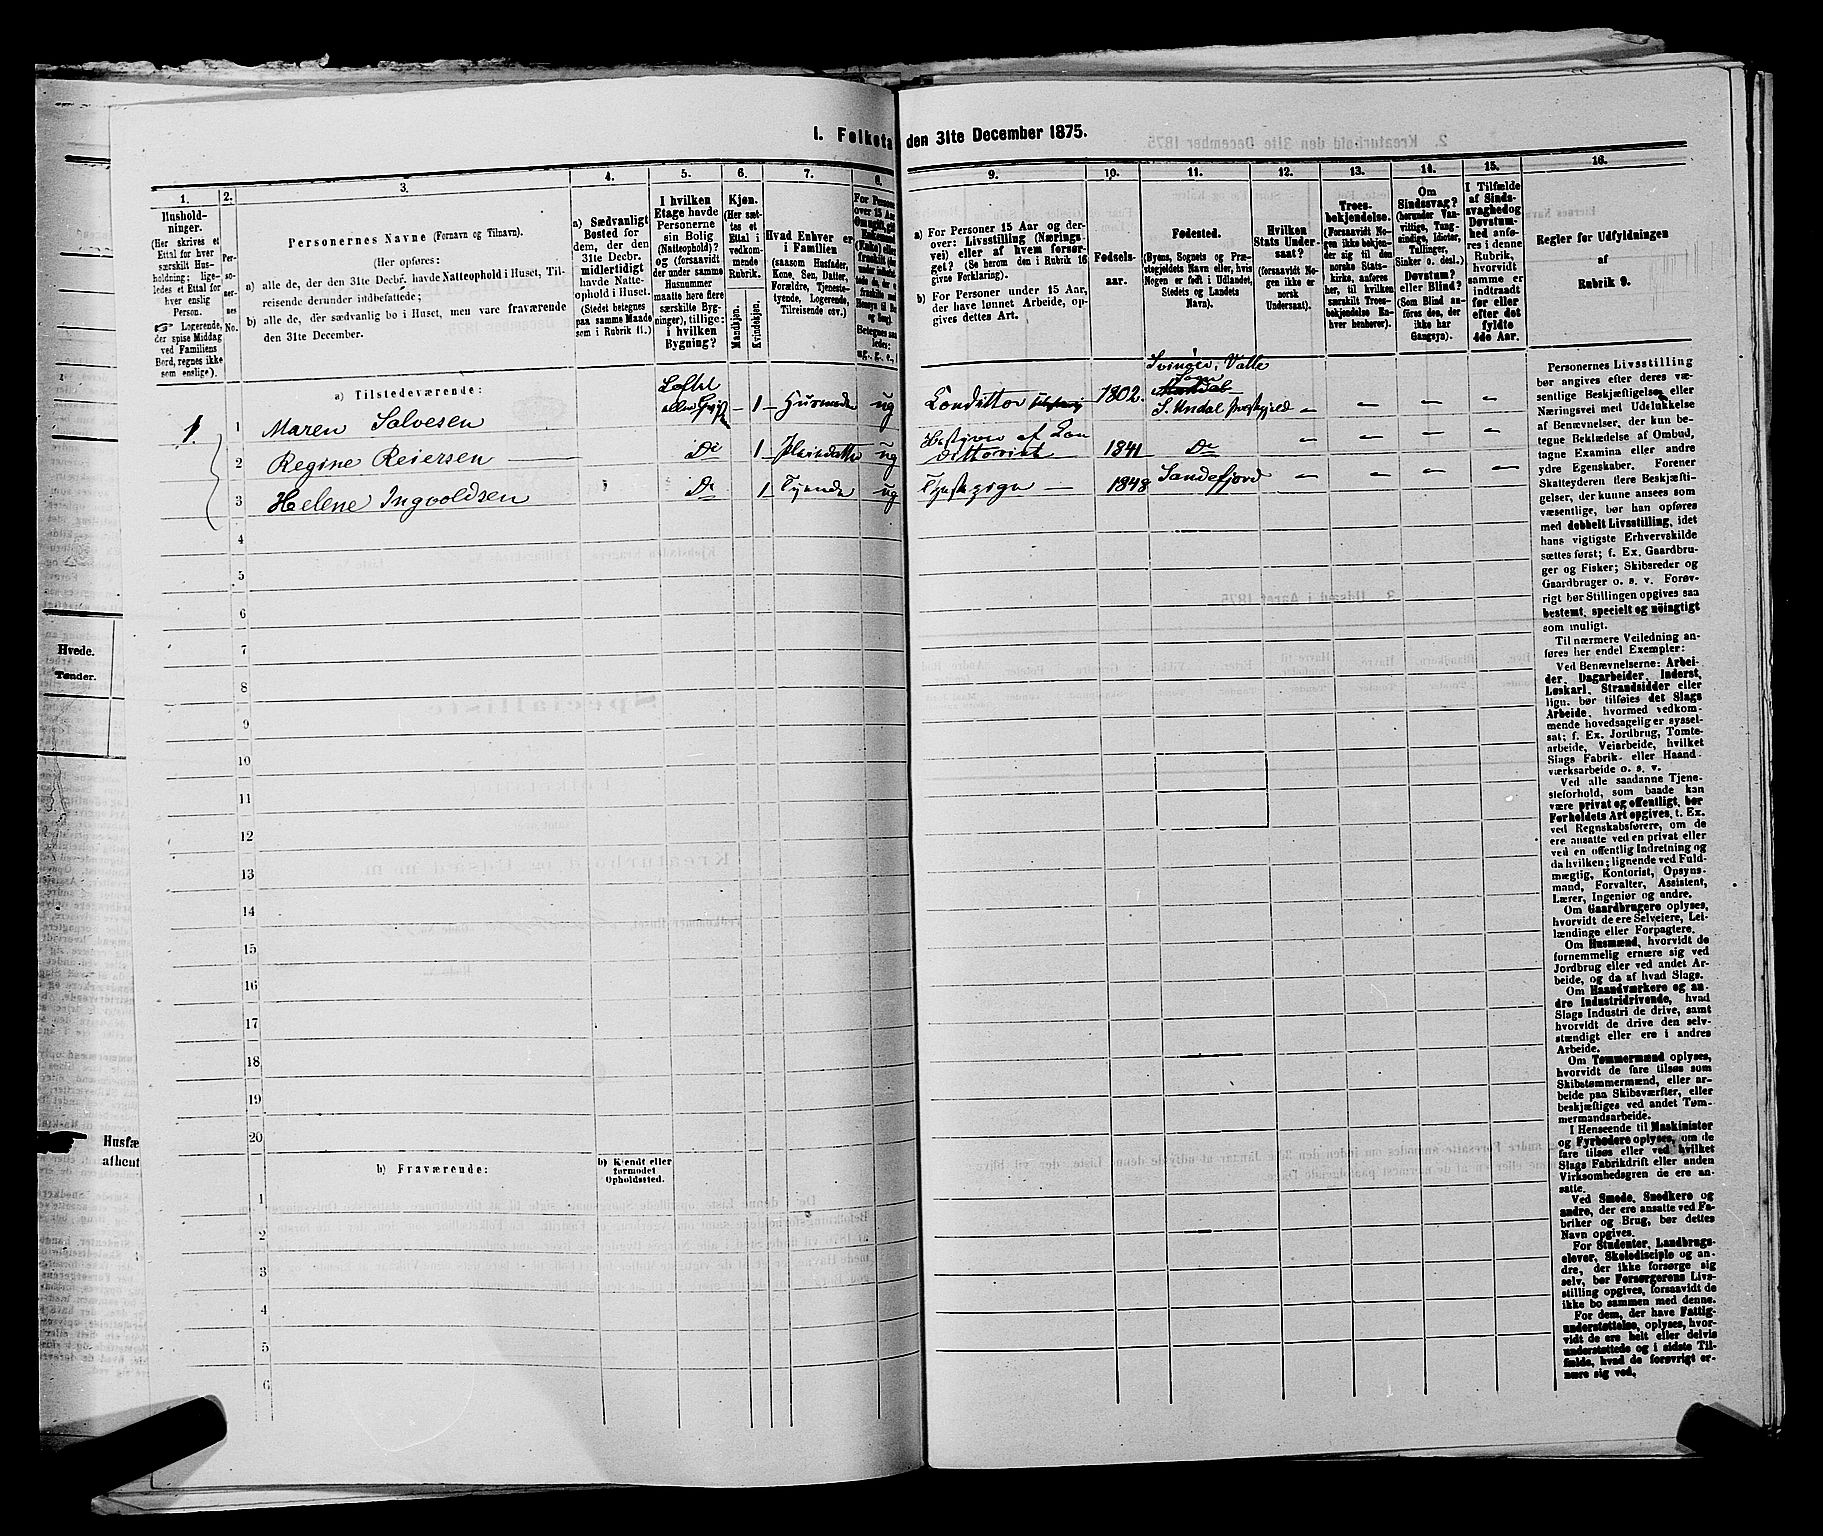 I. Folketa den 31te December 1875.
1.
2.
3.
4.
5.
6.
7.
8.
9.
10.
11.
12.
13.
14.
15.
16.
Hushold-
ninger.
(Her skrives et
Ettal for hver
særskilt Hus-
holdning; lige-
ledes et Ettal for
hver enslig
Person.
☞ Logerende,
der spise Middag
ved Familiens
Bord, regnes ikke
som enslige).
Per-
so-
ner-
nes
No.
Personernes Navne (Fornavn og Tilnavn).
(Her opføres:
a) alle de, der den 31te Decbr. havde Natteophold i Huset, Til-
reisende derunder indbefattede;
b) alle de, der sædvanlig bo i Huset, men vare fraværende
den 31te December.
a) Sædvanligt
Bosted for
dem, der den
31te Decbr.
midlertidigt
havde Natte-
ophold i Huset.
(Stedet betegnes
paa samme Maade
som i Rubrik 11.)
I hvilken
Etage havde
Personerne
sin Bolig
(Natteophold)?
og (forsaavidt
der under samme
Husnummer
maatte høre flere
særskilte Byg-
ninger), tillige:
i hvilken
Bygning?
Kjøn.
(Her sæt-
tes et
Ettal i
vedkom-
mende
Rubrik.
Mandkjøn.
Kvindekjøn.
Hvad Enhver er
i Familien
(saasom Husfader,
Kone, Søn, Datter,
Forældre, Tjeneste-
tyende, Logerende,
Tilreisende osv.)
For Persone
over 15 Aar
Betegnes saa
ledes:
ug., g., e.,
a) For Personer 15 Aar og der-
over: Livsstilling (Nærings-
vei) eller af hvem forsør-
get? (Se herom den i Rubrik 16
givne Forklaring).
b) For Personer under 15 Aar,
der have lønnet Arbeide, op-
gives dettes Art.
Fødsels-
aar.
Fødested.
(Byens, Sognets og Præ-
stegjeldets Navn eller, hvis
Nogen er født i Udlandet,
Stedets og Landets
Navn).
Hvilken
Stats Under-
saat?
(forsaavidt No-
gen ikke er
norsk
Undersaat).
Troes-
bekjendelse.
(Forsaavidt No-
gen ikke bekjen-
der sig til den
norske Stats-
kirke, anføres
her, til hvilken
særskilt Troes-
bekjendelse En-
hver henhører).
Om
Sindssvag?
(herunder Van-
vittige, Tung-
sindige, Idioter,
Tullinger,
Sinker o. desl.)
Døvstum?
eller Blind?
(Som Blind an-
føres den, der
ikke har
Gangsyn).
I Tilfælde
af Sinds-
svaghed og
Døvstum-
hed anfø-
res i denne
Rubrik,
hvorvidt
samme er
indtraadt
før eller
efter det
fyldte
4de Aar.
Regler for Udfyldningen
af
Rubrik 9.
a) Tilstedeværende:
1 1 Maren Salvesen Loftet 1 Husmoder ug Conditor 1802. Svinøer, Valle Sogn S. Undal Præstegjeld
2 Regine Reiersen Do 1 Pleiedatter ug Bestyrer af Conditoriet 1841 Do
3 Helene Ingvoldsen Do 1 Tyende ug Tjenstepige 1848 Sandefjord
4
5
6
7
8
9
10
11
12
13
14
15
16
17
18
19
20
b) Fraværende:
b) Kjendt eller
formodet
Opholdssted.
1
2
3
4
5
6
Hvede.
Tønder.
Husfæ
afhent
Personernes Livsstilling
bør angives efter deres væ-
sentlige Beskjæftigelse eller
Næringsvei med Udelukkelse
af Benævnelser, der kun be-
tegne Beklædelse af Ombud,
tagne Examina eller andre
ydre Egenskaber. Forener
Skatteyderen flere Beskjæfti-
gelser, der kunne ansees som
væsentlige, bør han opføres
med dobbelt Livsstilling, idet
hans vigtigste Erhvervskilde
sættes først; f. Ex. Gaardbru-
ger og Fisker; Skibsreder og
Gaardbruger o. s. v. Forøv-
rigt bør Stillingen opgives saa
bestemt, specielt og nöiagtigt
som muligt.
Til nærmere Veiledning an-
føres her endel Exempler:
Ved Benævnelserne: Arbei-
der, Dagarbeider, Inderst,
Løskarl, Strandsidder eller
lign. bør tilføies det Slags
Arbeide, hvormed vedkom-
mende hovedsagelig er syssel-
sat; f. Ex. Jordbrug, Tomte-
arbeide, Veiarbeide, hvilket
Slags Fabrik- eller Haand-
værksarbeide o. s. v.
Ved alle saadanne Tjene-
steforhold, som baade kan
være privat og offentligt, bør
Forholdets Art opgives, t. Ex.
ved Regnskabsførere, om de
ere ansatte ved en privat eller
ved en offentlig Indretning og
da hvilken; lignende ved Fuld-
mægtig, Kontorist, Opsyns-
mand, Forvalter, Assistent,
Lærer, Ingeniør og andre.
Om Gaardbrugere oplyses,
hvorvidt de ere Selveiere, Lei-
lændinge eller Forpagtere.
Om Husmænd, hvorvidt de
fornemmelig ernære sig ved
Jordbrug eller ved andet Ar-
beide, og da af hvad Slags.
Om Haandværkere og an-
dre Industridrivende, hvad
Slags Industri de drive, samt
hvorvidt de drive den selv-
stændigt eller ere i andres
Arbeide.
Om Tømmermænd oplyses,
hvorvidt de fare tilsøs som
Skibstømmermænd, eller ar-
beide paa Skibsværfter, eller
beskjæftiges ved andet Tøm-
mermandsarbeide.
I Henseende til Maskinister
og Fyrbødere oplyses, om de
fare tilsøs eller ved hvilket
Slags Fabrikdrift eller anden
Virksomhedsgren de ere an-
satte.
Ved Smede, Snedkere og
andre, der ere ansatte ved Fa-
briker og Brug, bør dettes
Navn opgives.
For Studenter, Landbrugs-
elever, Skoledisciple og an-
dre, der ikke forsørge sig
selv, bør Forsørgerens Livs-
stilling opgives, forsaavidt de
ikke bo sammen med denne.
For dem, der have Fattig-
understøttelse, oplyses, hvor-
vidt de ere helt eller delvis
understøttede og i sidste Til-
fælde, hvad de forøvrigt er-
nære sig ved.